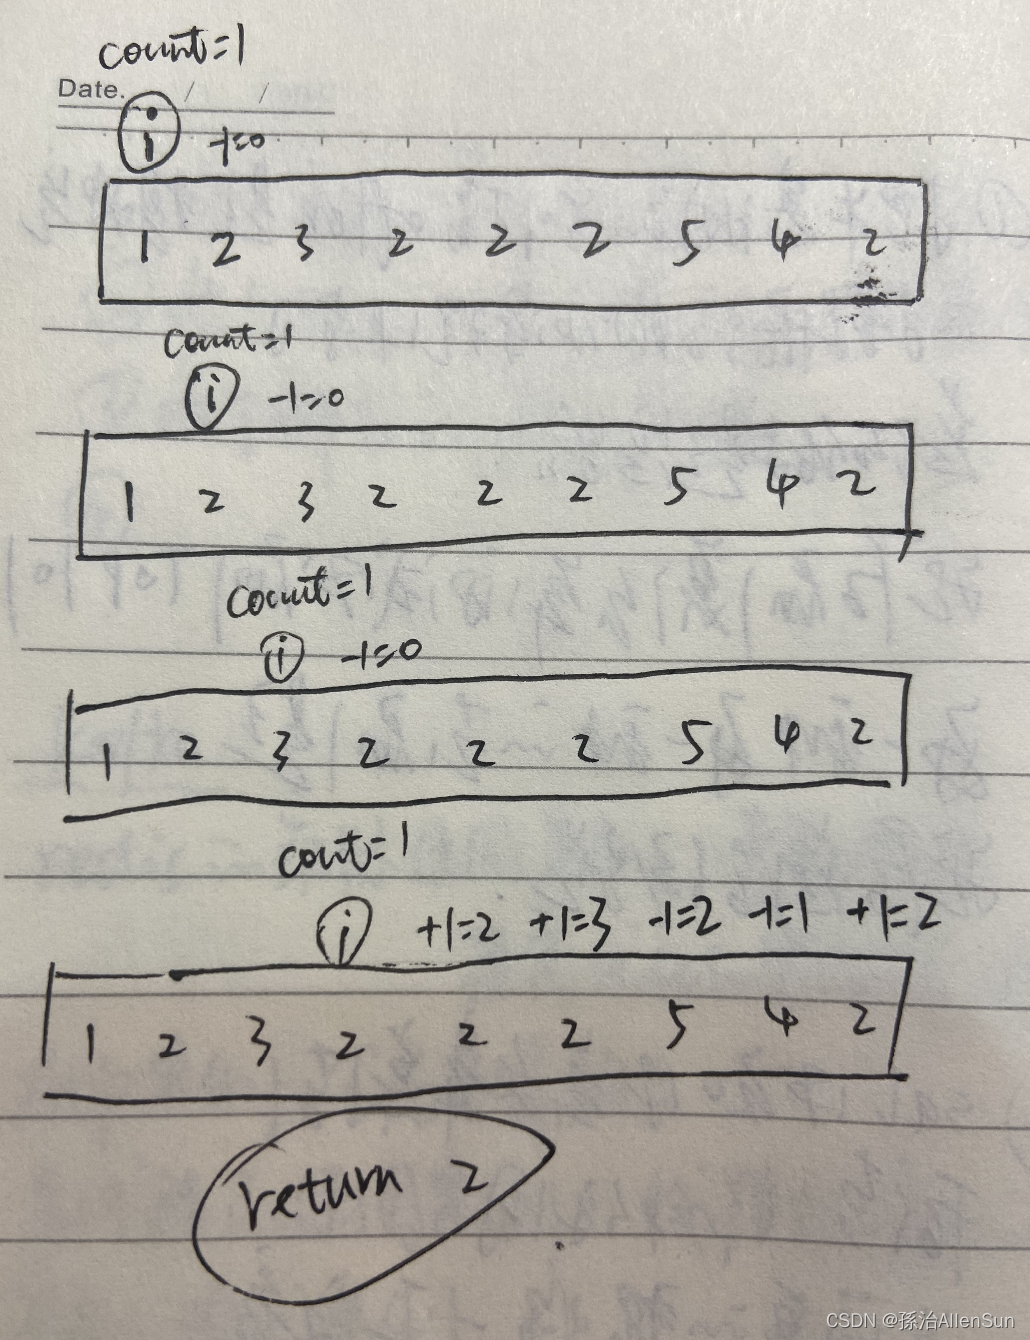 count=1
Date. / /
i -1=0
1 2 3 2 2 2 5 4 2
count=1
i -1=0
1 2 3 2 2 2 5 4 2
count=1
i -1=0
1 2 3 2 2 2 5 4 2
count=1
i +1=2 +1=3 -1=2 -1=1 +1=2
1 2 3 2 2 2 5 4 2
return 2
CSDN @孫治AllenSun